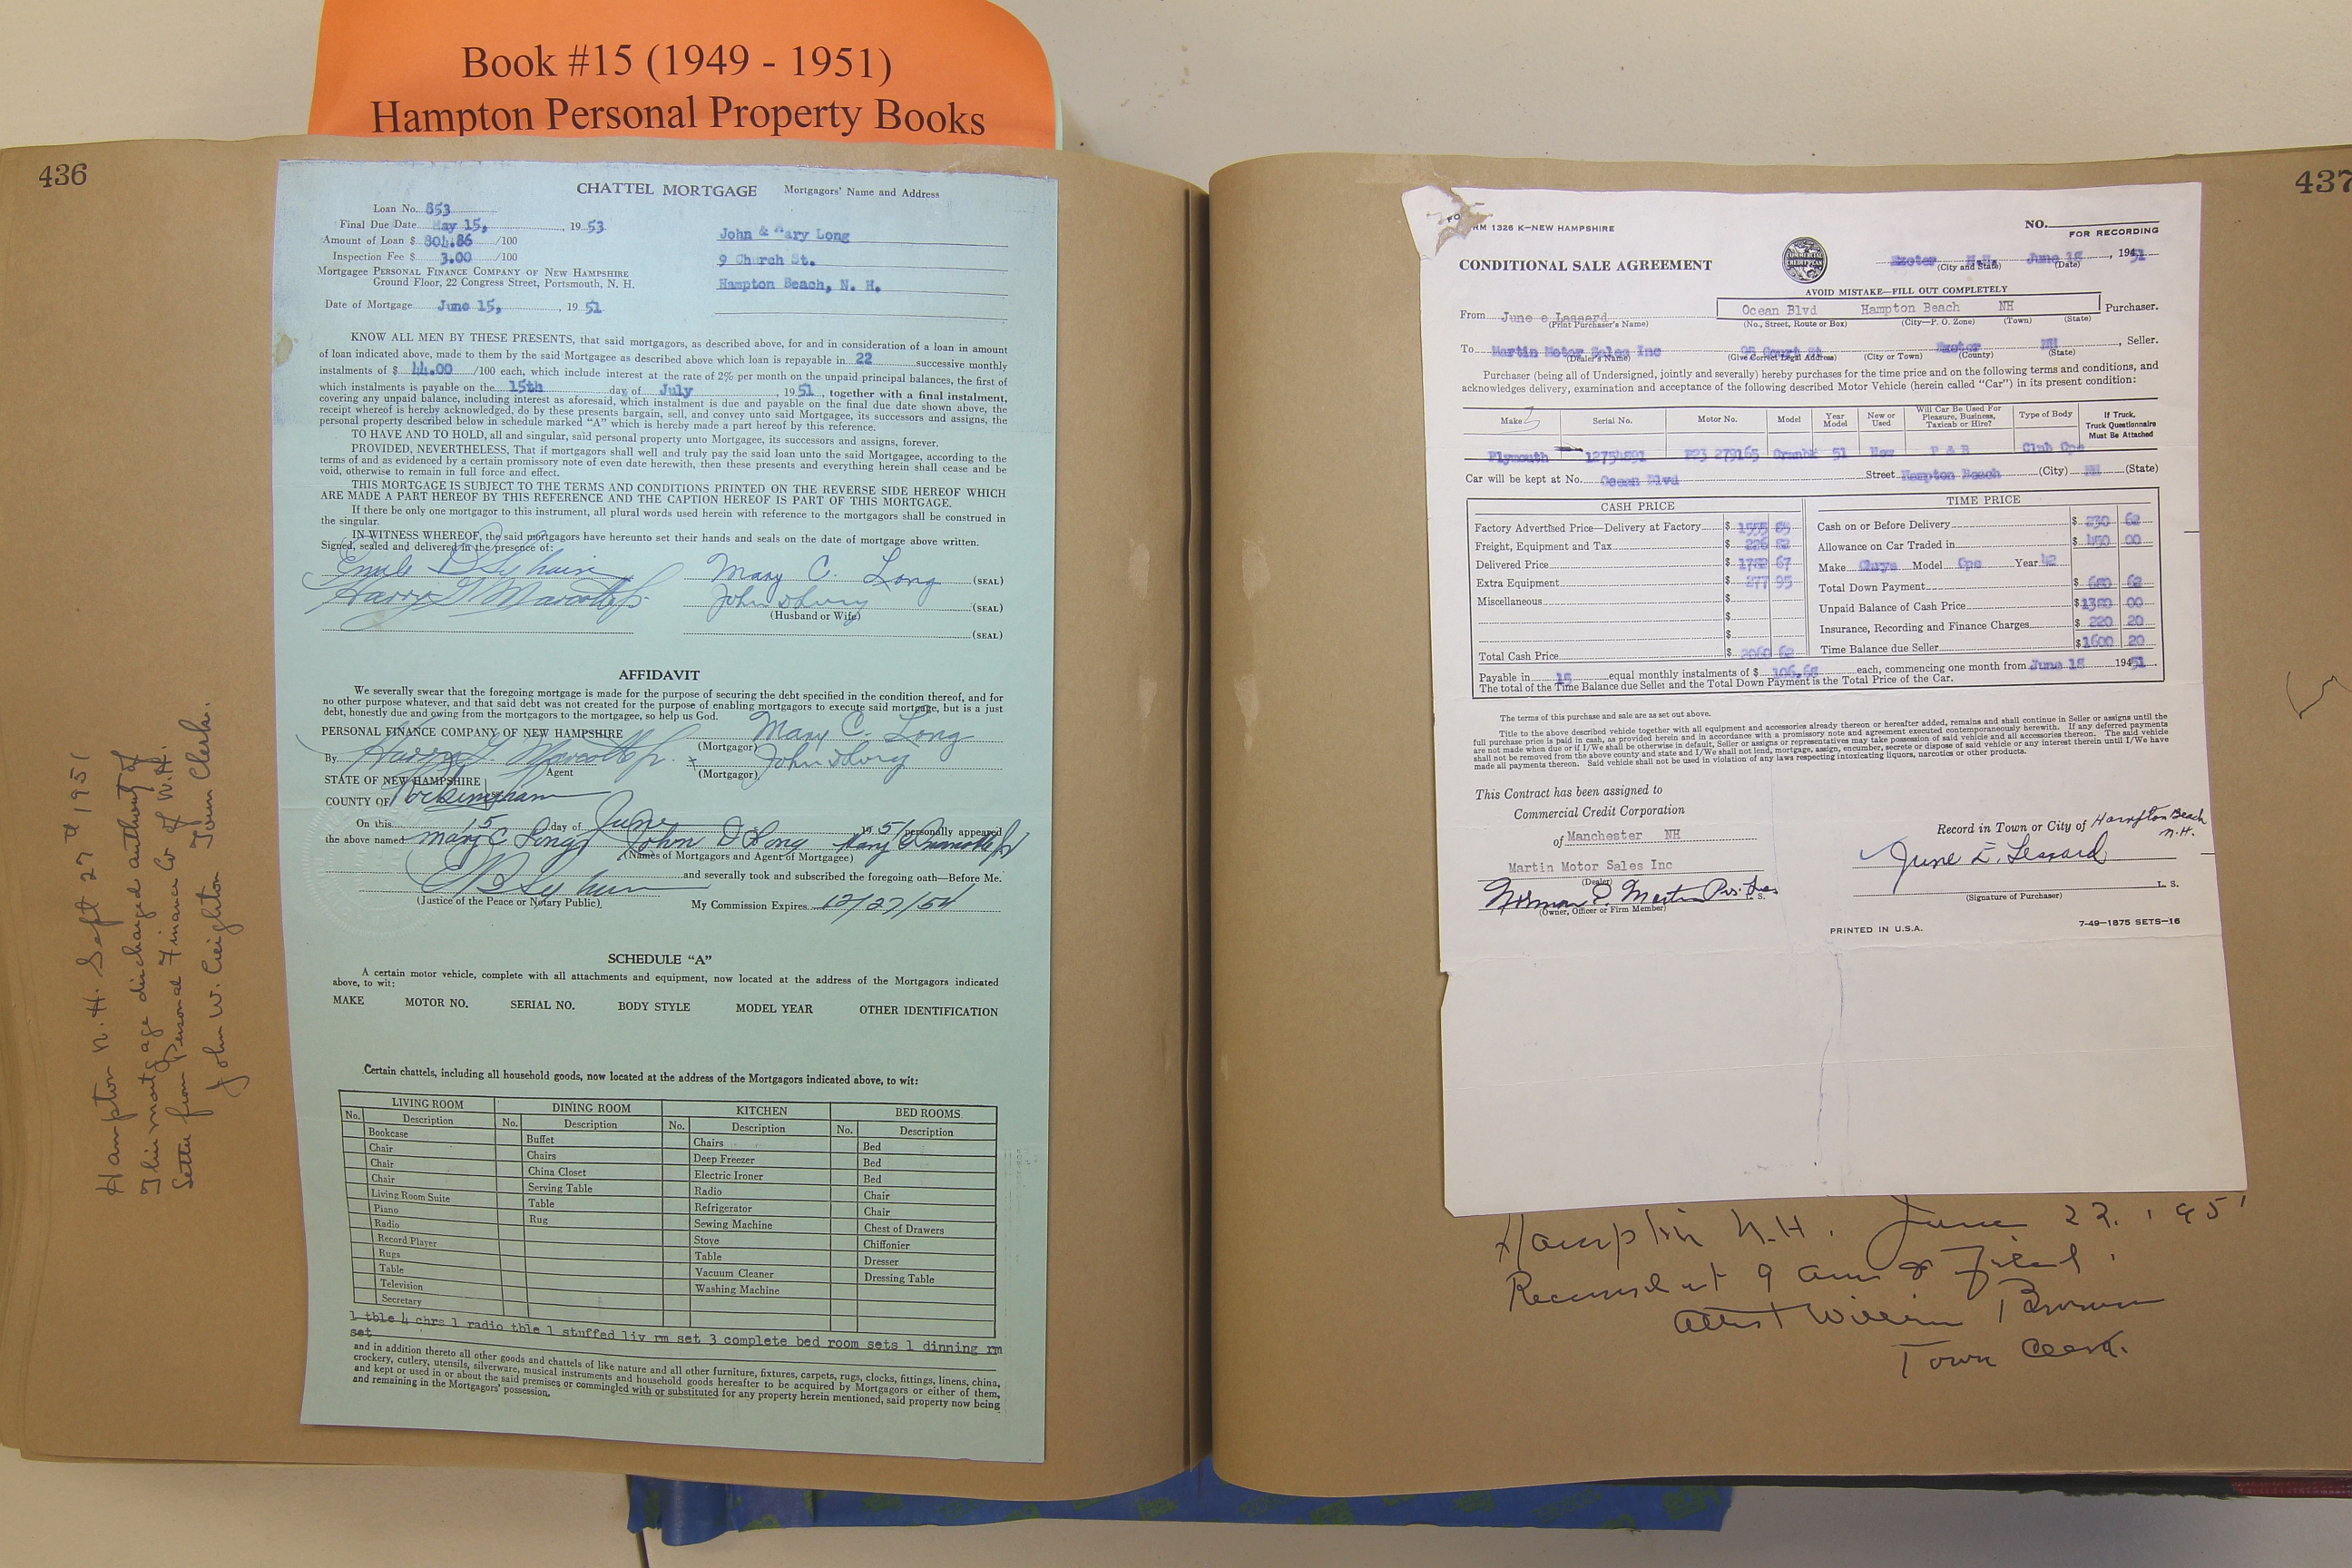 Book #15 (1949 - 1951)
Hampton Personal Property Books
436
CHATTEL MORTGAGE
Mortgagors' Name and Address
Loan No. 853
Final Due Date May 15, , 1953
Amount of Loan $ 804.86 /100
Inspection Fee $ 3.00 /100
Mortgagee PERSONAL FINANCE COMPANY OF NEW HAMPSHIRE
Ground Floor, 22 Congress Street, Portsmouth, N. H.
Date of Mortgage June 15, , 1951
John & Mary Long
9 Church St.
Hampton Beach, N. H.
KNOW ALL MEN BY THESE PRESENTS, that said mortgagors, as described above, for and in consideration of a loan in amount
of loan indicated above, made to them by the said Mortgagee as described above which loan is repayable in 22 successive monthly
instalments of $ 44.00 /100 each, which include interest at the rate of 2% per month on the unpaid principal balances, the first of
which instalments is payable on the 15th day of July , 1951, together with a final instalment,
covering any unpaid balance, including interest as aforesaid, which instalment is due and payable on the final due date shown above, the
receipt whereof is hereby acknowledged, do by these presents bargain, sell, and convey unto said Mortgagee, its successors and assigns, the
personal property described below in schedule marked "A" which is hereby made a part hereof by this reference.
TO HAVE AND TO HOLD, all and singular, said personal property unto Mortgagee, its successors and assigns, forever.
PROVIDED, NEVERTHELESS, That if mortgagors shall well and truly pay the said loan unto the said Mortgagee, according to the
terms of and as evidenced by a certain promissory note of even date herewith, then these presents and everything herein shall cease and be
void, otherwise to remain in full force and effect.
THIS MORTGAGE IS SUBJECT TO THE TERMS AND CONDITIONS PRINTED ON THE REVERSE SIDE HEREOF WHICH
ARE MADE A PART HEREOF BY THIS REFERENCE AND THE CAPTION HEREOF IS PART OF THIS MORTGAGE.
If there be only one mortgagor to this instrument, all plural words used herein with reference to the mortgagors shall be construed in
the singular.
IN WITNESS WHEREOF, the said mortgagors have hereunto set their hands and seals on the date of mortgage above written.
Signed, sealed and delivered in the presence of:
Mary C. Long (SEAL)
Harry G. Marcotte Jr. John D Long (SEAL)
(Husband or Wife)
(SEAL)
AFFIDAVIT
We severally swear that the foregoing mortgage is made for the purpose of securing the debt specified in the condition thereof, and for
no other purpose whatever, and that said debt was not created for the purpose of enabling mortgagors to execute said mortgage, but is a just
debt, honestly due and owing from the mortgagors to the mortgagee, so help us God.
PERSONAL FINANCE COMPANY OF NEW HAMPSHIRE Mary C. Long
(Mortgagor)
By Harry G. Marcotte Jr. x John D Long
Agent (Mortgagor)
STATE OF NEW HAMPSHIRE
COUNTY OF Rockingham
On this 15 day of June 1951 personally appeared
the above named Mary C Long John D Long
(Names of Mortgagors and Agent of Mortgagee)
and severally took and subscribed the foregoing oath—Before Me.
(Justice of the Peace or Notary Public)
My Commission Expires 12/27/54
SCHEDULE "A"
A certain motor vehicle, complete with all attachments and equipment, now located at the address of the Mortgagors indicated
above, to wit:
MAKE MOTOR NO. SERIAL NO. BODY STYLE MODEL YEAR OTHER IDENTIFICATION
Certain chattels, including all household goods, now located at the address of the Mortgagors indicated above, to wit:
LIVING ROOM DINING ROOM KITCHEN BED ROOMS
No. Description No. Description No. Description No. Description
Bookcase Buffet Chairs Bed
Chair Chairs Deep Freezer Bed
Chair China Closet Electric Ironer Bed
Chair Serving Table Radio Chair
Living Room Suite Table Refrigerator Chair
Piano Rug Sewing Machine Chest of Drawers
Radio Stove Chiffonier
Record Player Table Dresser
Rugs Vacuum Cleaner Dressing Table
Table Washing Machine
Television
Secretary
1 tble 4 chrs 1 radio tble 1 stuffed liv rm set 3 complete bed room sets 1 dinning rm
set
and in addition thereto all other goods and chattels of like nature and all other furniture, fixtures, carpets, rugs, clocks, fittings, linens, china,
crockery, cutlery, utensils, silverware, musical instruments and household goods hereafter to be acquired by Mortgagors or either of them,
and kept or used in or about the said premises or commingled with or substituted for any property herein mentioned, said property now being
and remaining in the Mortgagors' possession.
Hampton N.H. Sept 27th 1951
This mortgage discharged authority of
letter from Personal Finance Co of N.H.
John W. Creighton Town Clerk.
437
FORM 1326 K—NEW HAMPSHIRE
NO.
FOR RECORDING
CONDITIONAL SALE AGREEMENT
COMMERCIAL CREDIT PLAN
Exeter N.H. June 18 , 1951
(City and State) (Date)
AVOID MISTAKE—FILL OUT COMPLETELY
From June e Lessard Ocean Blvd Hampton Beach NH Purchaser.
(Print Purchaser's Name) (No., Street, Route or Box) (City—P. O. Zone) (Town) (State)
To Martin Motor Sales Inc 95 Court St Exeter NH , Seller.
(Dealer's Name) (Give Correct Legal Address) (City or Town) (County) (State)
Purchaser (being all of Undersigned, jointly and severally) hereby purchases for the time price and on the following terms and conditions, and
acknowledges delivery, examination and acceptance of the following described Motor Vehicle (herein called "Car") in its present condition:
Make Serial No. Motor No. Model Year Model New or Used Will Car Be Used For Pleasure, Business, Taxicab or Hire? Type of Body If Truck, Truck Questionnaire Must Be Attached
Plymouth 12754891 P23 279165 Cranbk 51 New P & B Club Cpe
Car will be kept at No. Ocean Blvd Street Hampton Beach (City) NH (State)
CASH PRICE
Factory Advertised Price—Delivery at Factory $ 1555 85
Freight, Equipment and Tax $ 226 82
Delivered Price $ 1782 67
Extra Equipment $ 277 95
Miscellaneous $
$
$
Total Cash Price $ 2060 62
TIME PRICE
Cash on or Before Delivery $ 230 62
Allowance on Car Traded in $ 450 00
Make Chrys Model Cpe Year 42
Total Down Payment $ 680 62
Unpaid Balance of Cash Price $ 1380 00
Insurance, Recording and Finance Charges $ 220 20
Time Balance due Seller $ 1600 20
Payable in 15 equal monthly instalments of $ 106.68 each, commencing one month from June 18 1951.
The total of the Time Balance due Seller and the Total Down Payment is the Total Price of the Car.
The terms of this purchase and sale are as set out above.
Title to the above described vehicle together with all equipment and accessories already thereon or hereafter added, remains and shall continue in Seller or assigns until the
full purchase price is paid in cash, as provided herein and in accordance with a promissory note and agreement executed contemporaneously herewith. If any deferred payments
are not made when due or if I/We shall be otherwise in default, Seller or assigns or representatives may take possession of said vehicle and all accessories thereon. The said vehicle
shall not be removed from the above county and state and I/We shall not lend, mortgage, assign, encumber, secrete or dispose of said vehicle or any interest therein until I/We have
made all payments thereon. Said vehicle shall not be used in violation of any laws respecting intoxicating liquors, narcotics or other products.
This Contract has been assigned to
Commercial Credit Corporation
of Manchester NH
Martin Motor Sales Inc
(Dealer)
Norman E. Martin Pres. Treas L. S.
(Owner, Officer or Firm Member)
Record in Town or City of Hampton Beach
N.H.
June E. Lessard
L. S.
(Signature of Purchaser)
PRINTED IN U.S.A.
7-49—1875 SETS—16
Hampton N.H. June 22. 1951
Received at 9 am & Filed.
Attest William Brown
Town Clerk.